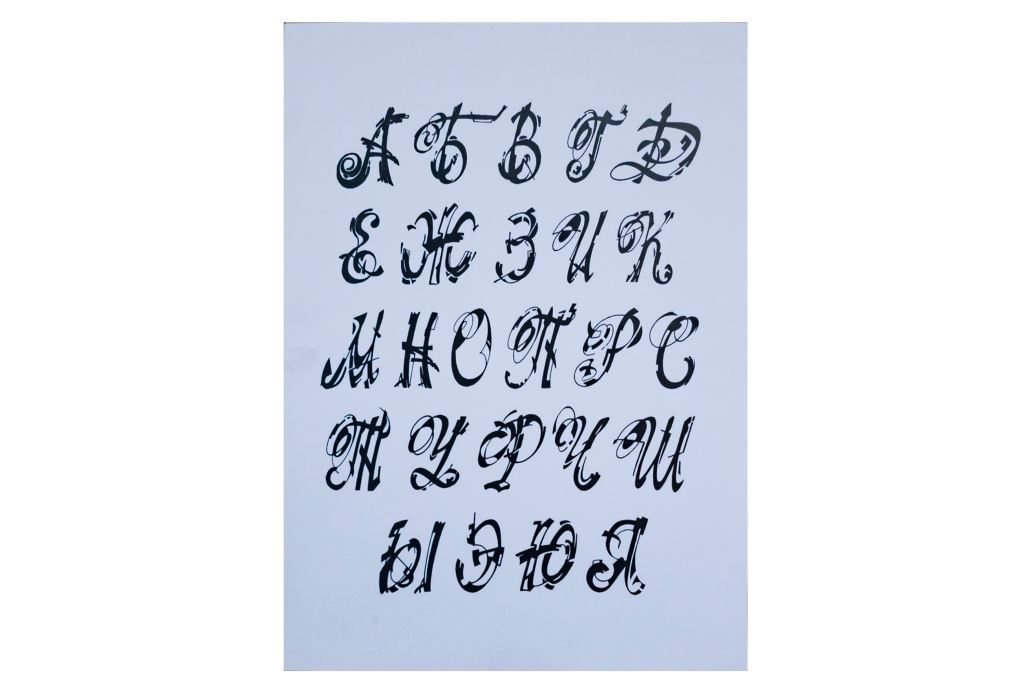 А Б В Г Д
Е Ж З И К
М Н О П Р С
Т У Ф Ч Ш
Ы Э Ю Я